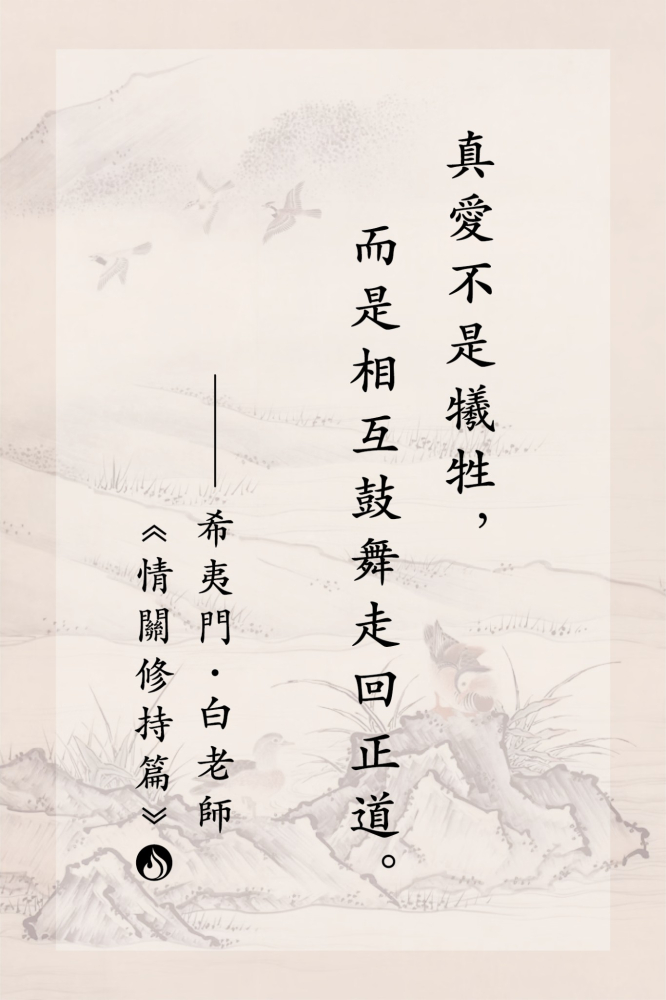 真愛不是犧牲，
而是相互鼓舞走回正道。
——希夷門・白老師
《情關修持篇》